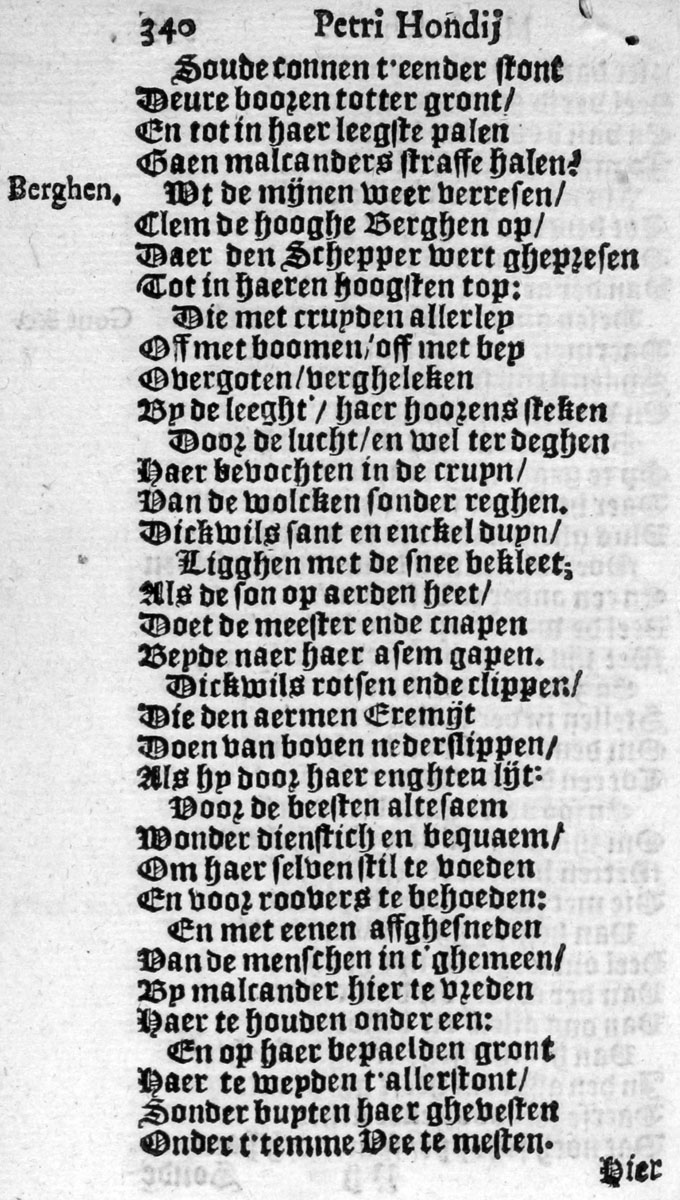 340 Petri Hondij
Soude connen t'eender stont
Deure booren totter gront/
En tot in haer leegste palen
Gaen malcanders straffe halen?
Berghen. Wt de mijnen weer verresen/
Clem de hooghe Berghen op/
Daer den Schepper wert ghepresen
Tot in haeren hoogsten top:
Die met cruyden allerley
Off met boomen/off met bey
Overgoten/vergheleken
By de leeght'/ haer hoorens steken
Door de lucht/en wel ter deghen
Haer bevochten in de cruyn/
Van de wolcken sonder reghen.
Dickwils sant en enckel duyn/
Ligghen met de snee bekleet;
Als de son op aerden heet/
Doet de meester ende cnapen
Beyde naer haer asem gapen.
Dickwils rotsen ende clippen/
Die den aermen Eremijt
Doen van boven nederslippen/
Als hy door haer enghten lijt:
Voor de beesten altesaem
Wonder dienstich en bequaem/
Om haer selven stil te voeden
En voor roovers te behoeden:
En met eenen affghesneden
Van de menschen in t'ghemeen/
By malcander hier te vreden
Haer te houden onder een:
En op haer bepaelden gront
Haer te weyden t'allerstont/
Sonder buyten haer ghevesten
Onder t'temme Vee te mesten.
Hier